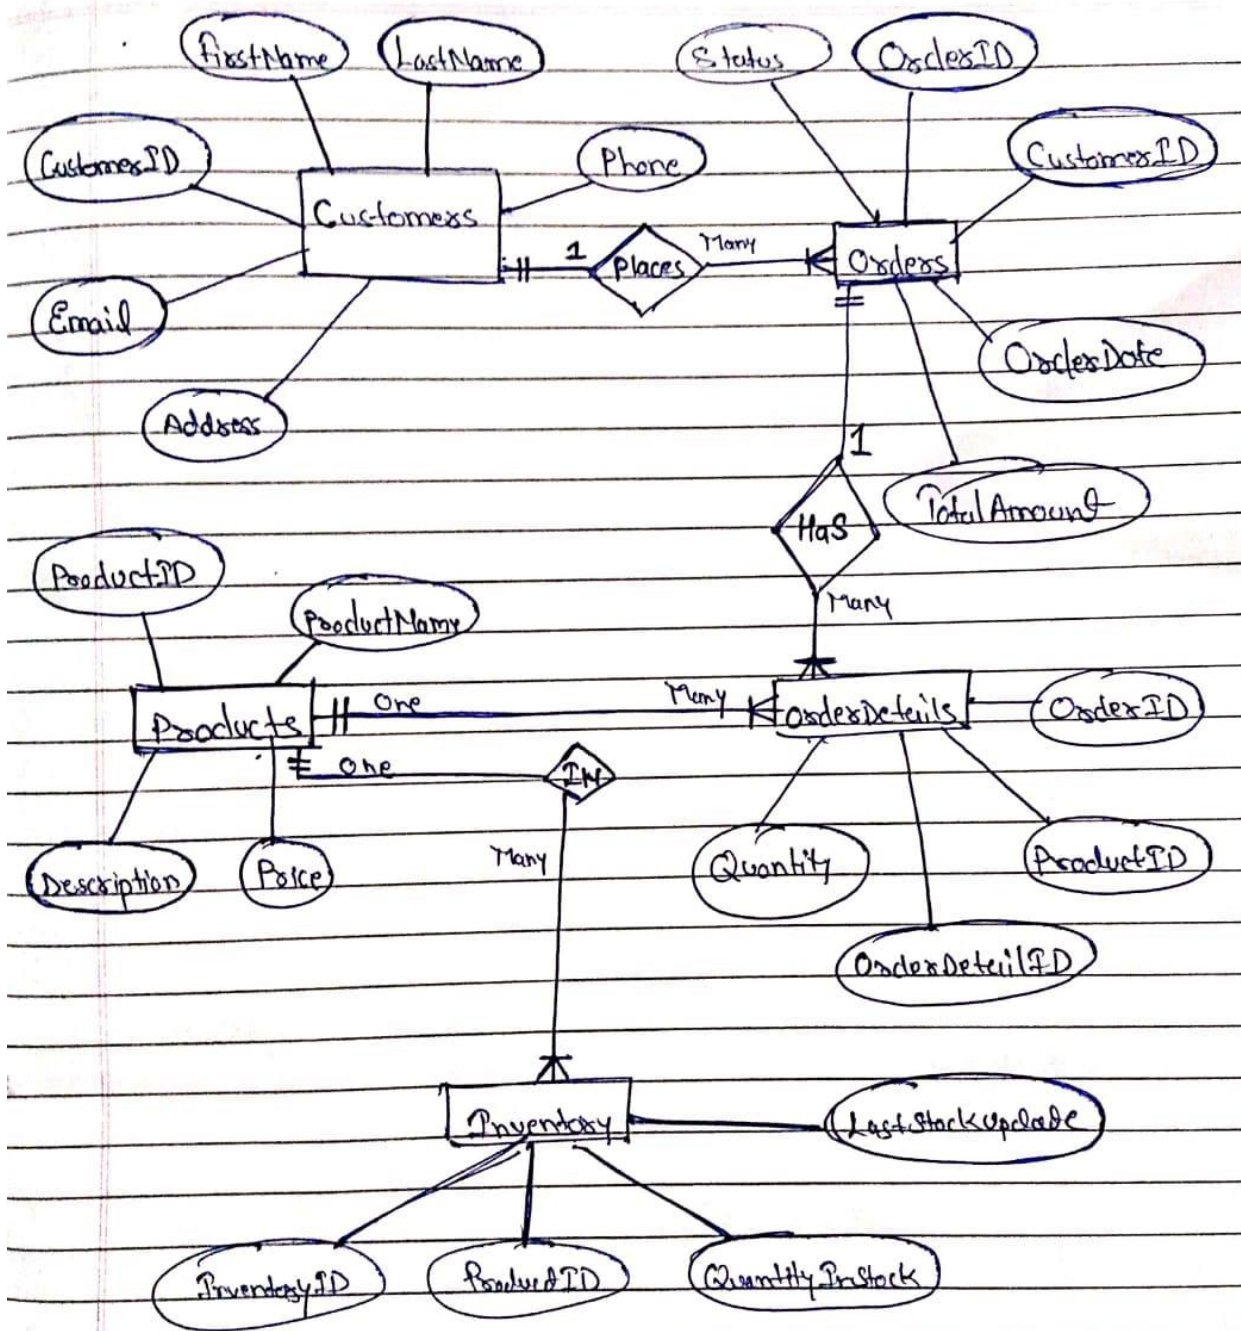 FirstName
LastName
Status
OrderID
CustomerID
Phone
CustomerID
Customers
1
Places
Many
Orders
Email
OrderDate
Address
1
TotalAmount
HaS
ProductID
Many
ProductNamy
One
Many
Products
OrderDetails
OrderID
One
IN
Many
Quantity
ProductID
Description
Price
OrderDetailID
Inventory
LastStockUpdate
InventoryID
ProductID
QuantityInStock